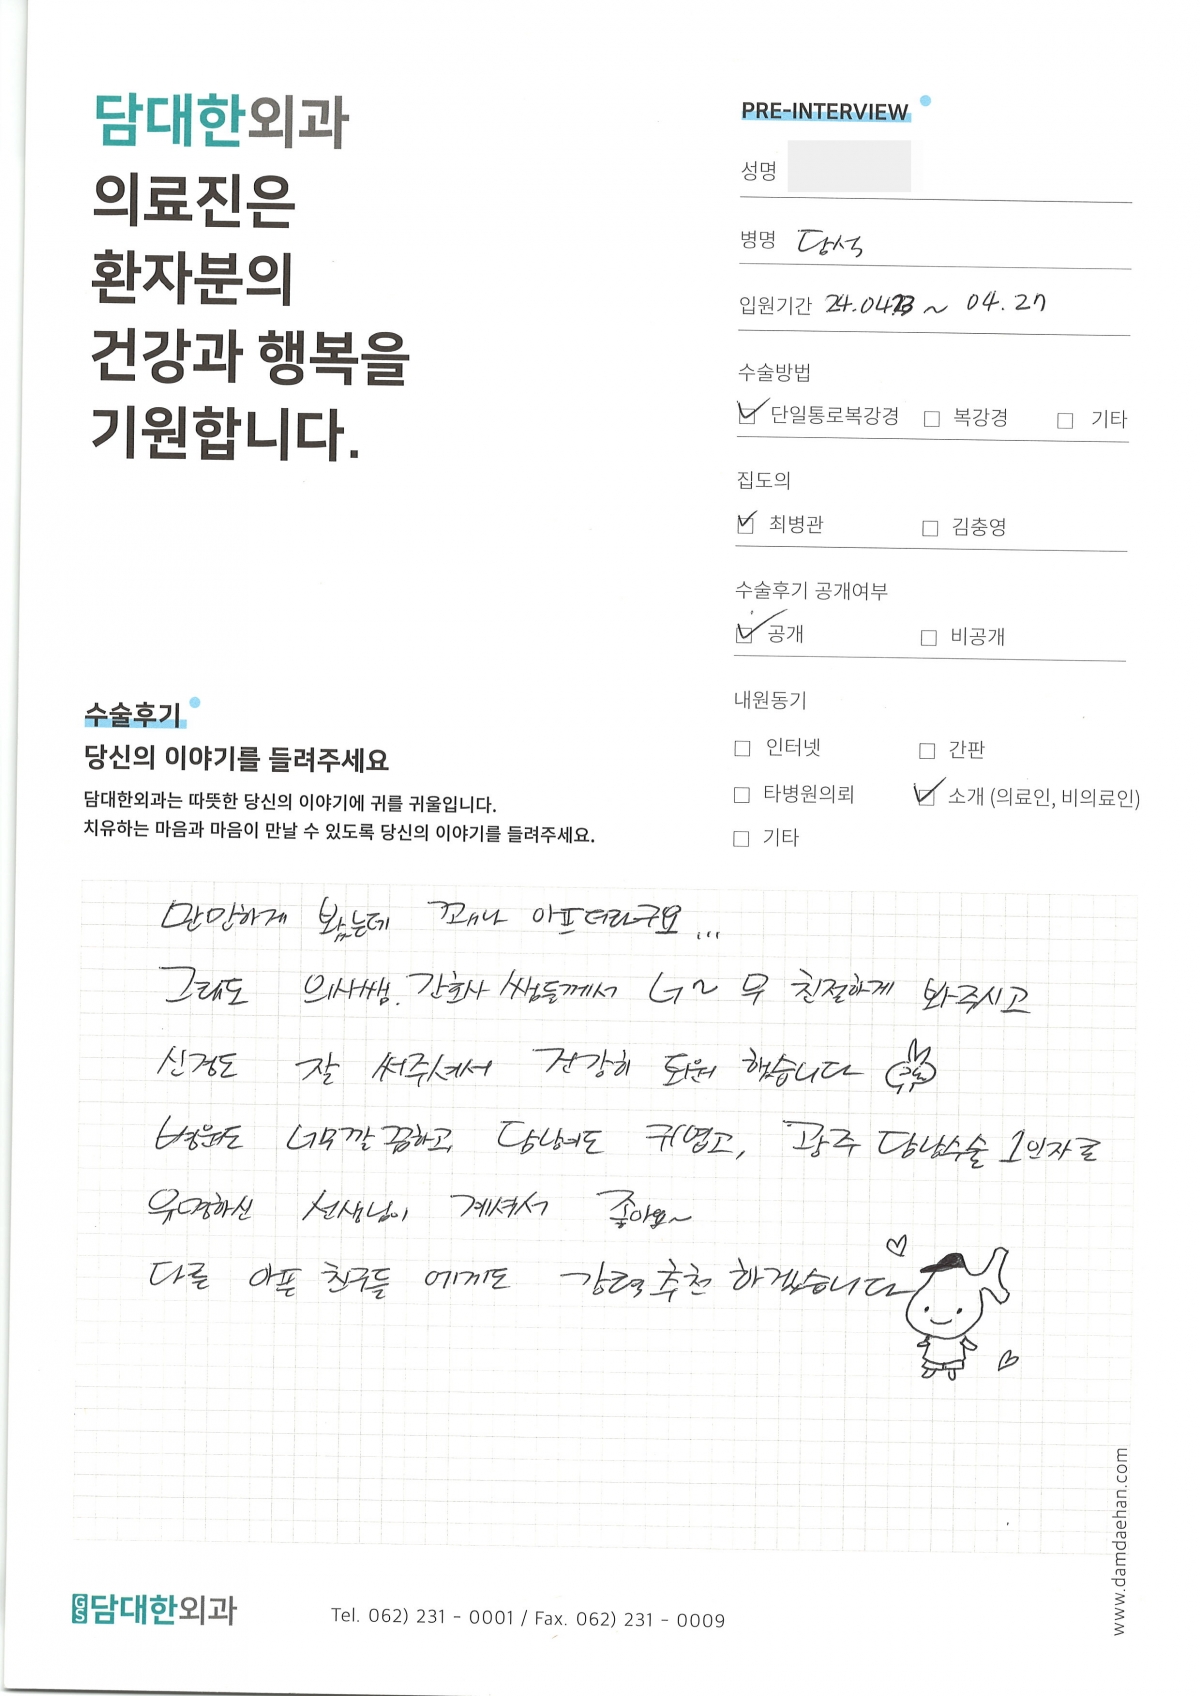 담대한외과
의료진은
환자분의
건강과 행복을
기원합니다.
PRE-INTERVIEW
성명
병명 담석
입원기간 24.04.23 ~ 04.27
수술방법
단일통로복강경 복강경 기타
집도의
최병관 김충영
수술후기 공개여부
공개 비공개
내원동기
인터넷 간판
타병원의뢰 소개 (의료인, 비의료인)
기타
수술후기
당신의 이야기를 들려주세요
담대한외과는 따뜻한 당신의 이야기에 귀를 귀울입니다.
치유하는 마음과 마음이 만날 수 있도록 당신의 이야기를 들려주세요.
만만하게 봤는데 꽤나 아프더라구요...
그래도 의사쌤. 간호사 쌤들께서 너~무 친절하게 봐주시고
신경도 잘 써주셔서 건강히 퇴원 했습니다
병원도 너무깔끔하고, 담낭이도 귀엽고, 광주 담낭수술 1인자로
유명하신 선생님이 계셔서 좋아요~
다른 아픈 친구들 에게도 강력추천 하겠습니다
GS담대한외과
Tel. 062) 231 - 0001 / Fax. 062) 231 - 0009
www.damdaehan.com